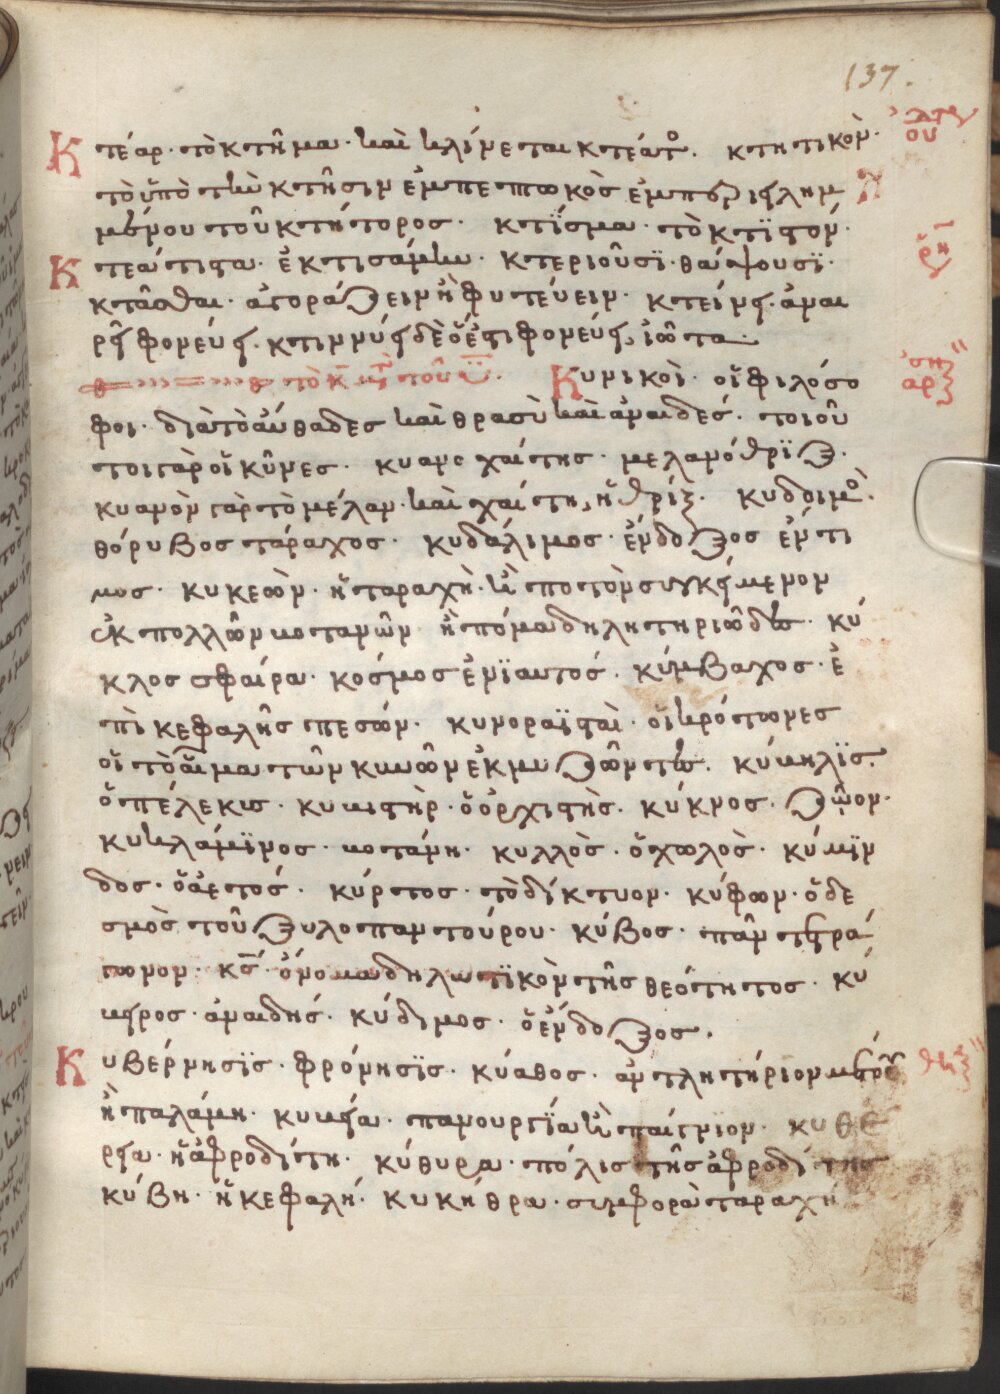 137.
Κτέαρ· τὸ κτῆμα· καὶ κλίνεται κτέατο. κτητικὸν·
τὸ ὑπὸ τὴν κτῆσιν ἐμπεπτωκὸς
μένου τοῦ κτήτορος· κτίσμα· τὸ κτιστόν·
Κτεάτιστα· ἐκτισάμην· κτεριοῦσϊ· θάψουσϊ·
κτᾶσθαι· ἀγοράζειν ἢ φυτεύειν· κτείνας· ἀναι
ρεῖς φονεύεις· ἰῶτα·
τὸ κ̅ μετὰ τοῦ ϋ̅. Κυνικοὶ· οἱ φιλόσο
φοι· διὰ τὸ αὔθαδες καὶ θρασὺ καὶ ἀναιδές· τοιοῦ
τοι γὰρ οἱ κύνες· κυανοχαίτης· μελανόθριξ·
κυανὸν γὰρ τὸ μέλαν· καὶ χαίτη, ἡ θρίξ. κυδοιμὸ·
θόρυβος τάραχος· κυδάλιμος· ἔνδοξος ἔντι
μος· κυκεὼν· ἡ ταραχὴ· ἢ ποτὸν συγκείμενον
ἐκ πολλῶν βοτανῶν ἢ πόμα δηλητηριῶδες· κύ
κλος σφαίρα· κόσμος ἐνϊαυτός· κύμβαχος· ἐ
πὶ κεφαλῆς πεσών· κυνοραϊσταὶ· οἱ κρότωνες
οἱ τὸ αἷμα τῶν κυνῶν ἐκμυζῶντες. κύβηλϊς·
ὁ πέλεκυς· κυβιστὴρ· ὁ ὀρχιστὴς· κύκνος· ζῷον·
κυκλάμϊνος· βοτάνη· κυλλὸς· ὁ χωλὸς· κύμϊν
δος· ὁ ἀετός· κύρτος· τὸ δίκτυον· κύφων· ὁ δε
σμὸς τοῦ ξυλοπαντούρου· κύβος· πᾶν τετρά
γωνον· κ̅ς̅· ὄνομα δηλωτϊκὸν τῆς θεότητος· κύ
βειρος· ἀναιδής· κύδιμος· ὁ ἔνδοξος.
Κυβέρνησϊς· φρόνησϊς· κύαθος· ἀντλητήριον
ἢ παλάμη· κυβεία· πανουργία ἢ παίγνιον· κυθέ
ρεια· ἡ ἀφροδίτη· κύθυρα· πόλις τῆς ἀφροδίτης
κύβη· ἡ κεφαλή· κυκήθρα· συμφορὰ ταραχή